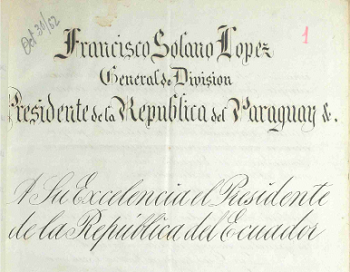 Oct 30/62
1
Francisco Solano Lopez
General de Division
Presidente de la Republica del Paraguay &.
A Su Excelencia el Presidente
de la República del Ecuador